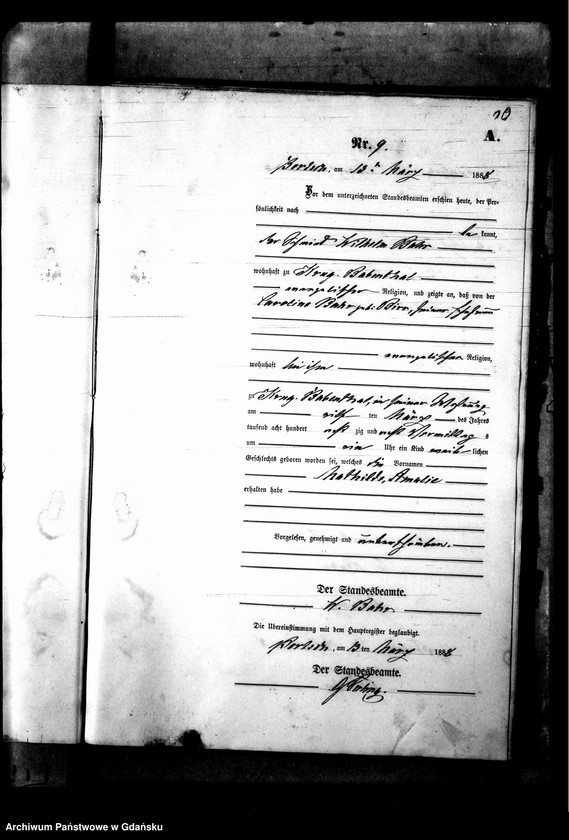 10
A.
Nr. 9.
am 13 ten März 1888
Vor dem unterzeichneten Standesbeamten erschien heute, der Per-
sönlichkeit nach
be kannt,
der Schmied Wilhelm Bahr
wohnhaft zu Krug Babenthal
evangelischer Religion, und zeigte an, daß von der
Caroline Bahr geb. seiner Ehefrau
evangelischer Religion,
wohnhaft bei ihm
zu Krug Babenthal, in seiner Wohnung
am ten März des Jahres
tausend acht hundert acht zig und acht Vormittags
um ein Uhr ein Kind weib lichen
Geschlechts geboren worden sei, welches die Vornamen
Mathilde, Amalie
erhalten habe
Vorgelesen, genehmigt und unterschrieben.
Der Standesbeamte.
W. Bahr
Die Übereinstimmung mit dem Hauptregister beglaubigt.
am 13 ten März 1888
Der Standesbeamte.
Archiwum Państwowe w Gdańsku